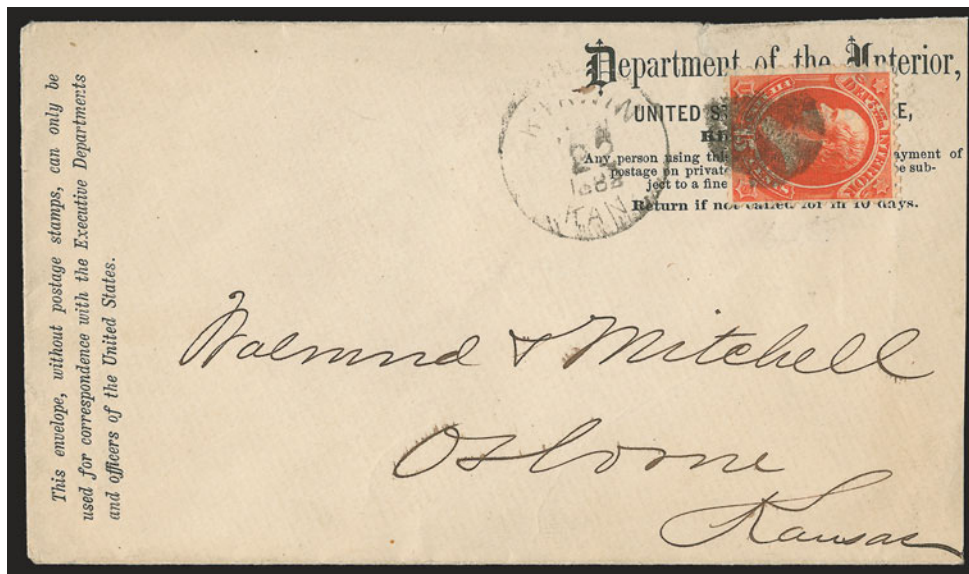 This envelope, without postage stamps, can only be
used for correspondence with the Executive Departments
and officers of the United States.
Department of the Interior,
UNITED S E,
Any person using this ayment of
postage on private be sub-
ject to a fine
Return if not called for in 10 days.
25
1882
UTAH
DEP'T INTERIOR
15
Walrond & Mitchell
Osborne
Kansas